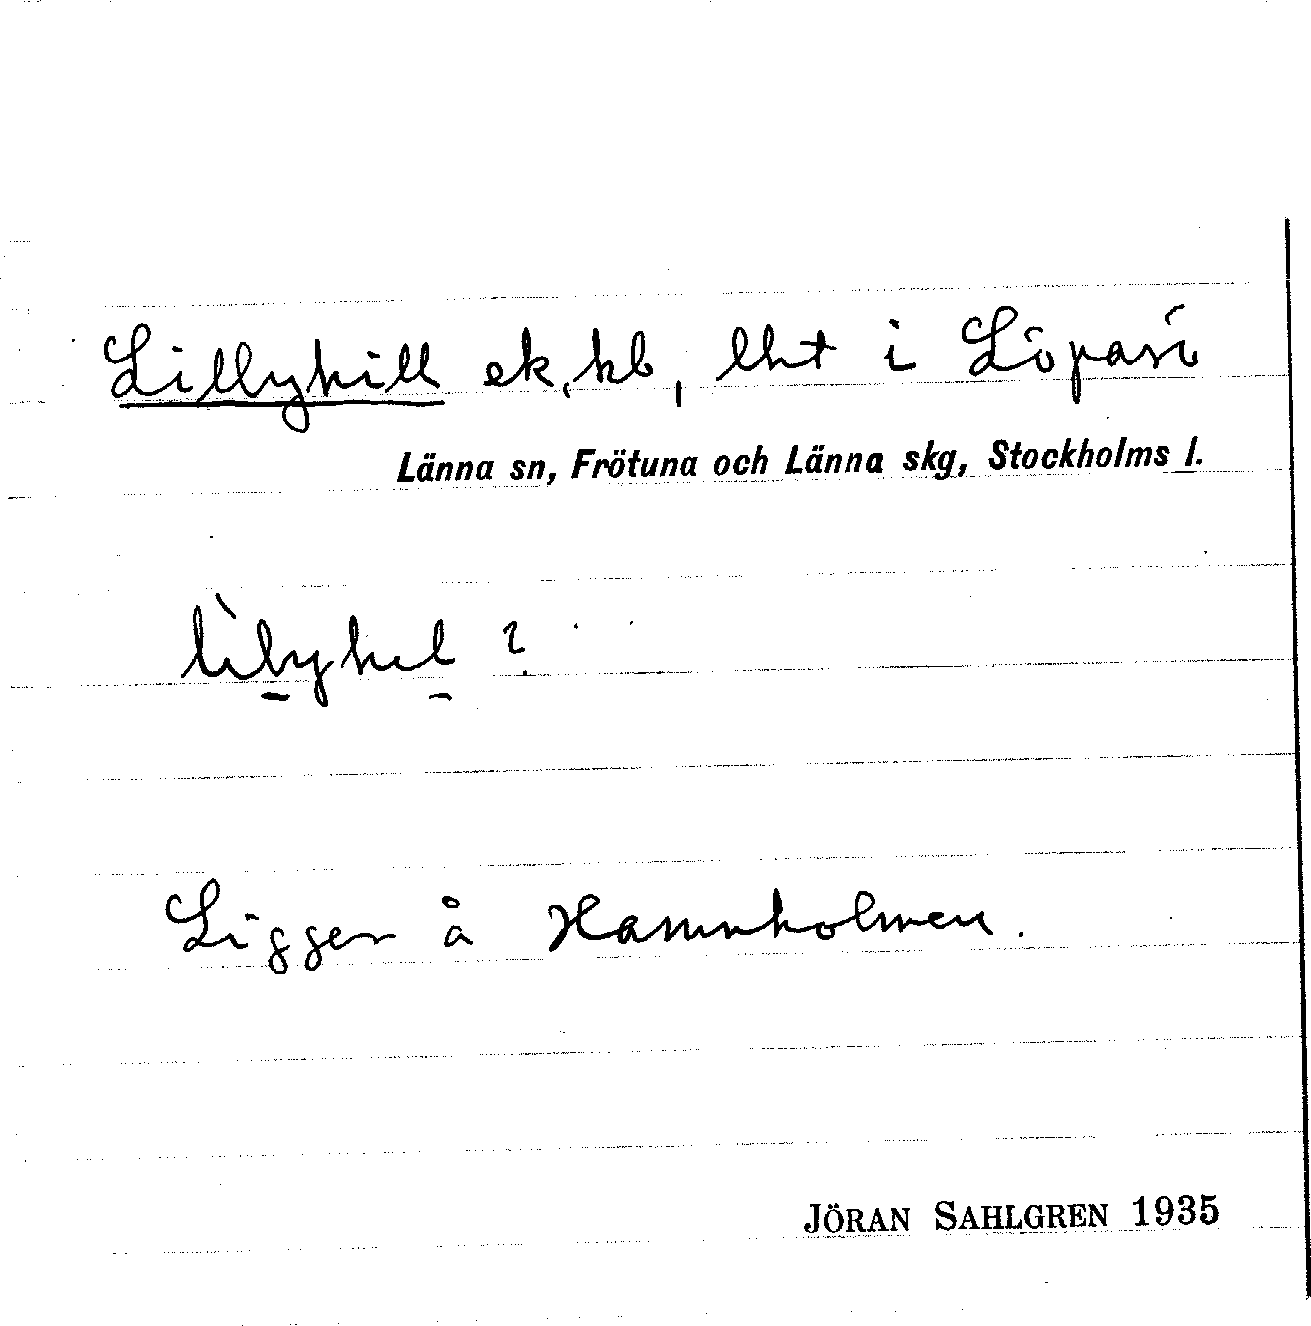 Lillyhill ek, kb, lht i Löparö
Länna sn, Frötuna och Länna skg, Stockholms l.
lìlyhil ?
Ligger å Hamnholmen.
JÖRAN SAHLGREN 1935